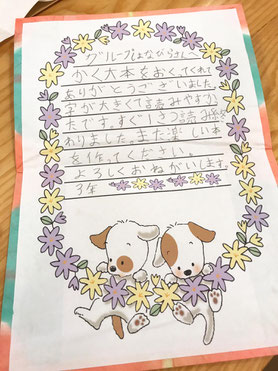 グループはなびらさんへ
かく大本をおくってくれて
ありがとうございました。
字が大きくて読みやすか
たです。すぐ1さつ読み終
わりました。また楽しい本
を作ってください。
よろしくおねがいします。
3年